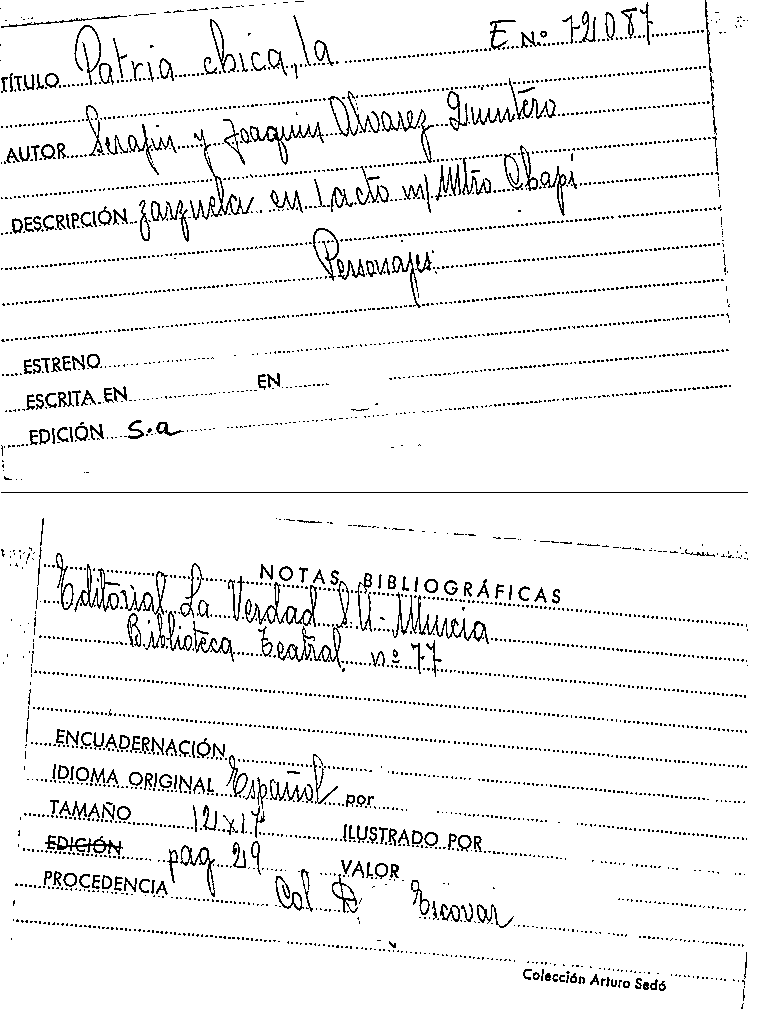 E Nº 72087
TÍTULO Patria chica, la
AUTOR Serafin y Joaquin Alvarez Quintero
DESCRIPCIÓN zarzuela en 1 acto m/ Mtro Chapi
Personajes:
ESTRENO
ESCRITA EN EN
EDICIÓN s.a
NOTAS BIBLIOGRÁFICAS
Editorial La Verdad S.U - Murcia
Biblioteca Teatral nº 77
ENCUADERNACIÓN
IDIOMA ORIGINAL Español por
TAMAÑO 12x17 ILUSTRADO POR
EDICIÓN pag 29 VALOR
PROCEDENCIA Col D. Escovar
Colección Arturo Sedó